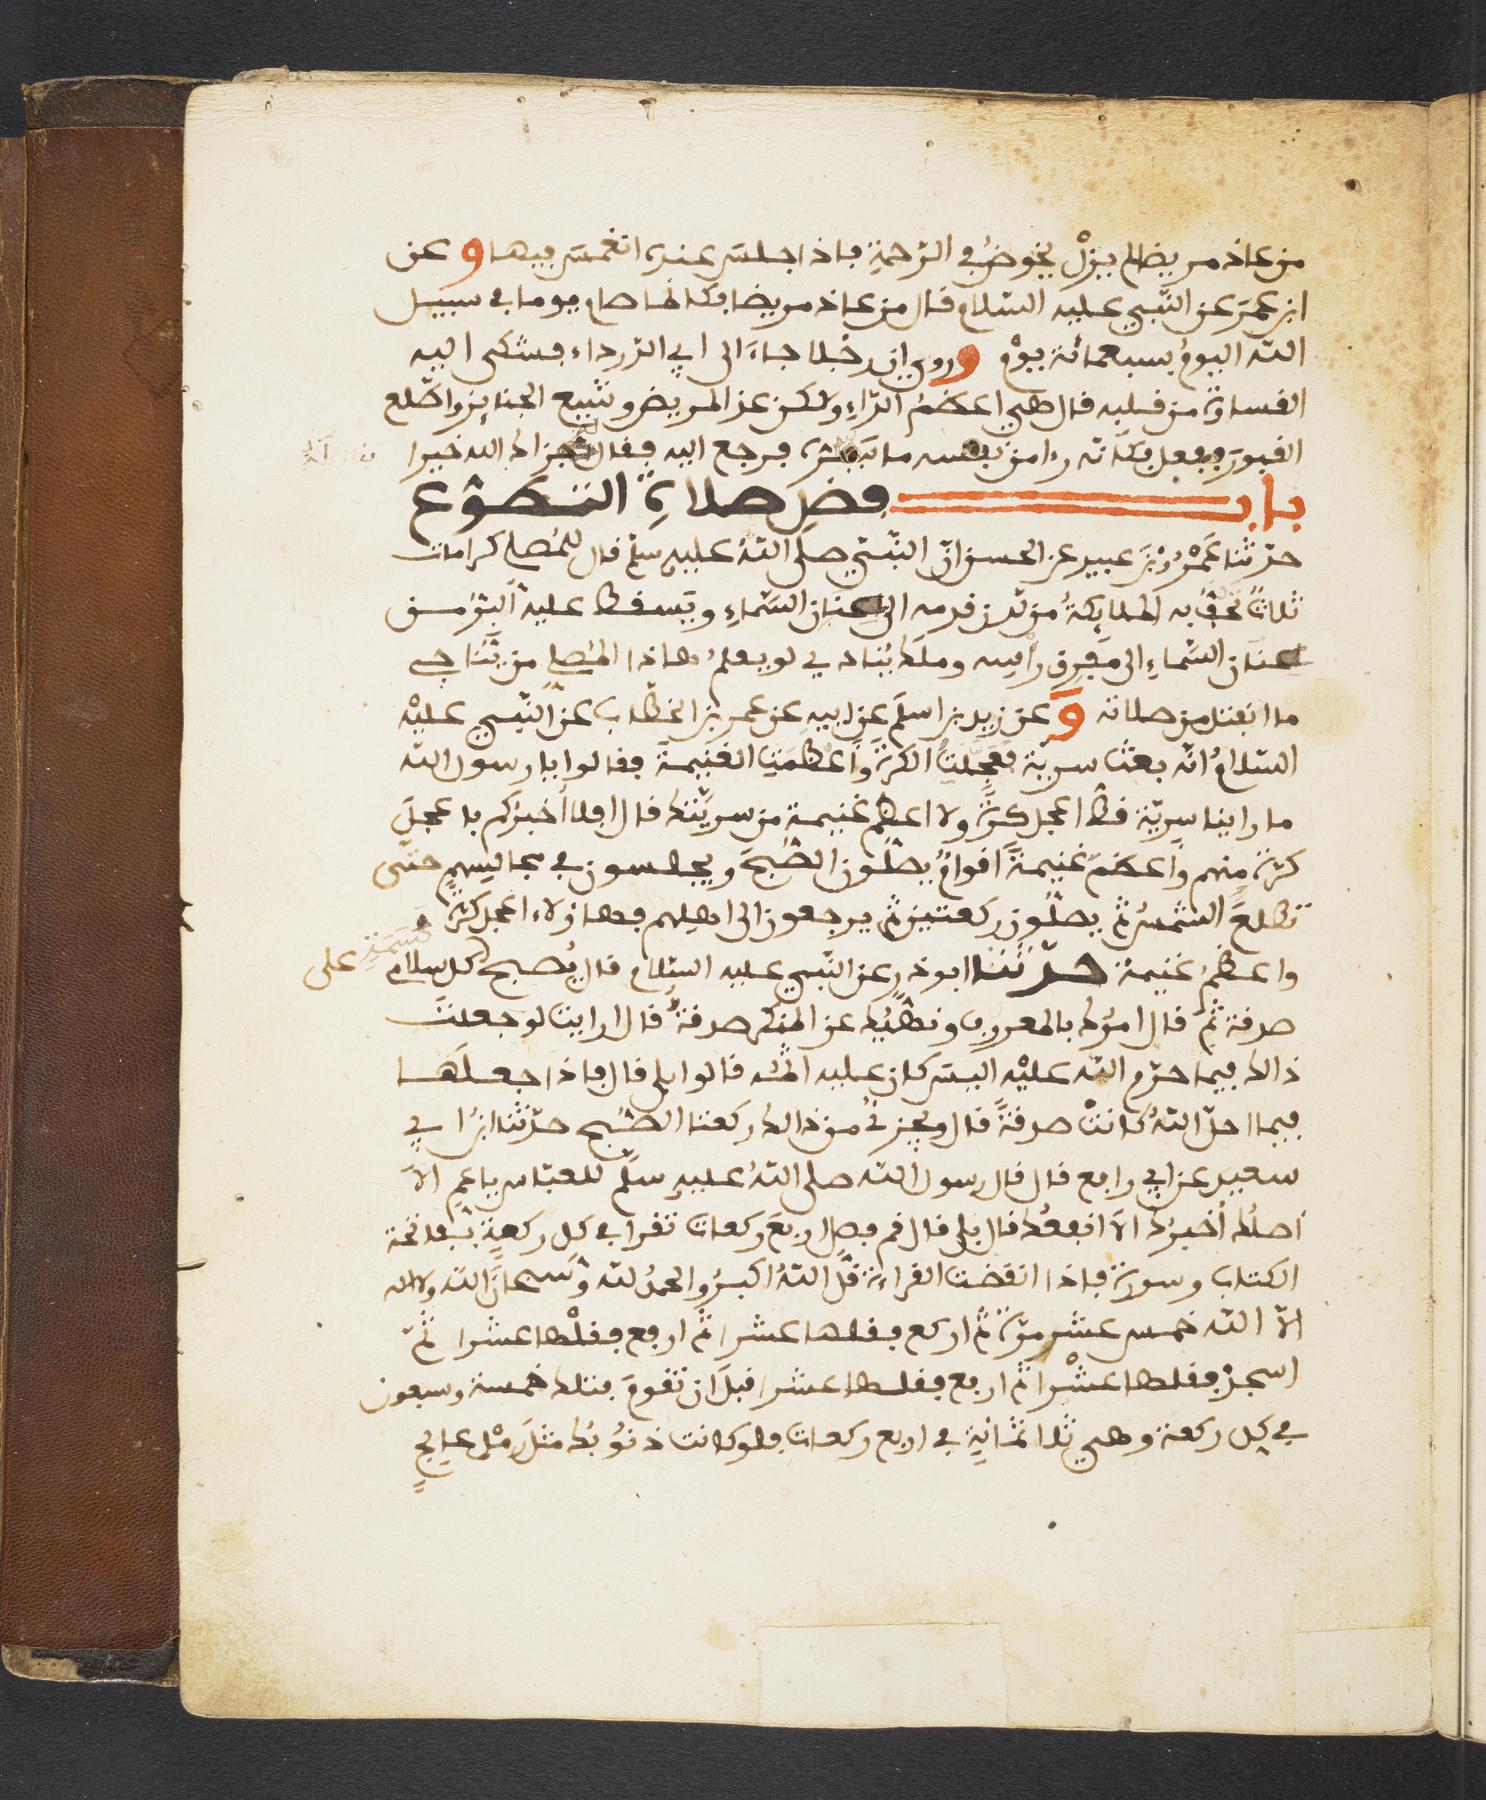 من عاد مريضا لم يزل يخوض في الرحمة فاذا جلس عنده انغمس فيها وعن
ابن عمر عن النّبي عليه السّلام قال من عاد مريضا فكانما صام يوما في سبيل
اللّه اليوم بسبعمائة يوم وروي ان رجلا جاء الى ابي الدّرداء فشكى اليه
القساوة من قلبه قال هي اعظم الدّاء ولكن عد المريض وشيّع الجنائز واطّلع
القبور ففعل فكانّه راى من نفسه ما يسره فرجع اليه فقال جزاك الله خيرا
باب فضل صلاة التطوّع
حدّثنا عَمْرُو بْنُ عبيد عن الحسن انّ النّبيّ صلّى اللّهُ عليه سلّم قال للمصلي كرامات
ثلاث تحفّ به الملايكةُ من لدن قدمه الى عنان السّماءِ ويسقط عليه البرّ من
عنان السّماءِ الى مفرق رأسه وملك يناديه لو يعلم هاذا المصلي من يُناجي
ما انفتل من صلاته وعن زيد بن اسلم عن ابيه عن عمر بن الخطّاب عن النّبيِ عليْه
السّلامُ انّه بعث سريّة فعجّلت الكرّة واعظمت الغنيمة فقالوا يا رسول اللّه
ما راينا سريّة قط اعجل كرّةً ولا اعظم غنيمة من سريّتك قال افلا أخبركم باعجل
كرّة منهم واعظم غنيمةً اقوامٌ يصلّون الصّبحَ ويجلسون في مجالسهم حتّى
تطلعَ الشمسُ ثم يصلّون ركعتين ثم يرجعون الى اهلهم فهاؤلاء اعجل كرّة
واعظمُ غنيمة حدّثنا ابو ذر عن النّبي عليه السلام قال يُصبح كل سلام على
صدقة ثم قال امرُك بالمعروف ونهيُك عن المنكر صدقة قال ارايت لو جعلت
ذالك فيما حرّم اللّه عليْه اليس كان عليه اثم قالوا بلى قال فاذا جعلها
فيما احلّ اللّهُ كانتْ صدقةً قال ويجزئ من ذالك ركعتا الضّحى حدّثنا ابن ابي
سعيد عن ابي رافع قال قال رسول اللّه صلى اللّهُ عليهِ سلّم للعبّاس يا عمِ الا
اصلك أخبرُك الا انفعُك قال بلى قال قم فصل اربعَ ركعات تقرا في كل ركعة بفاتحة
الكتاب وسورة فاذا انقضت القراءة قل اللّهُ اكبرُ والحمدُ للّه وسبحانَ اللّه ولا اله
الاّ اللّه خمس عشر مرّة ثم اركع فقلها عشرا ثم ارفع فقلْها عشرا ثمّ
اسجدْ فقلها عشْرا ثم ارفع فقلها عشرا قبلَ ان تقومَ فتلك خمسة وسبعون
في كل ركعة وهي ثلاثمائةٍ في اربع ركعات فلو كانت ذنوُبُك مثلَ رمْل عالِجٍ